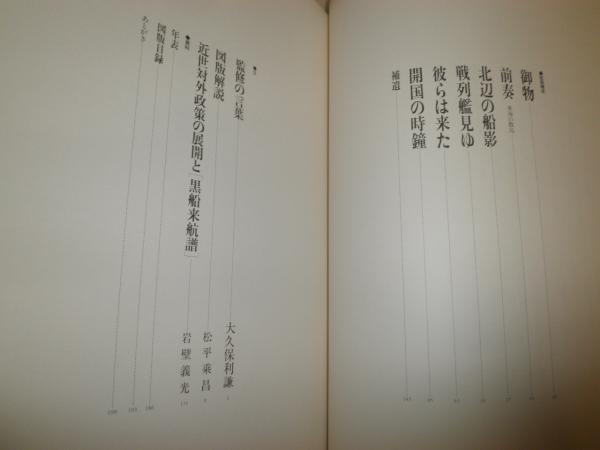 御物
前奏
北辺の船影
戦列艦見ゆ
彼らは来た
開国の時鐘
補遺 145
監修の言葉 大久保利謙
図版解説 松平乗昌
近世対外政策の展開と「黒船来航譜」 岩壁義光
●資料
年表
図版目録
あとがき